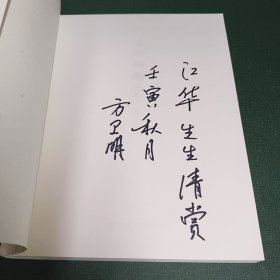 江华先生清赏
壬寅秋月
方卫明